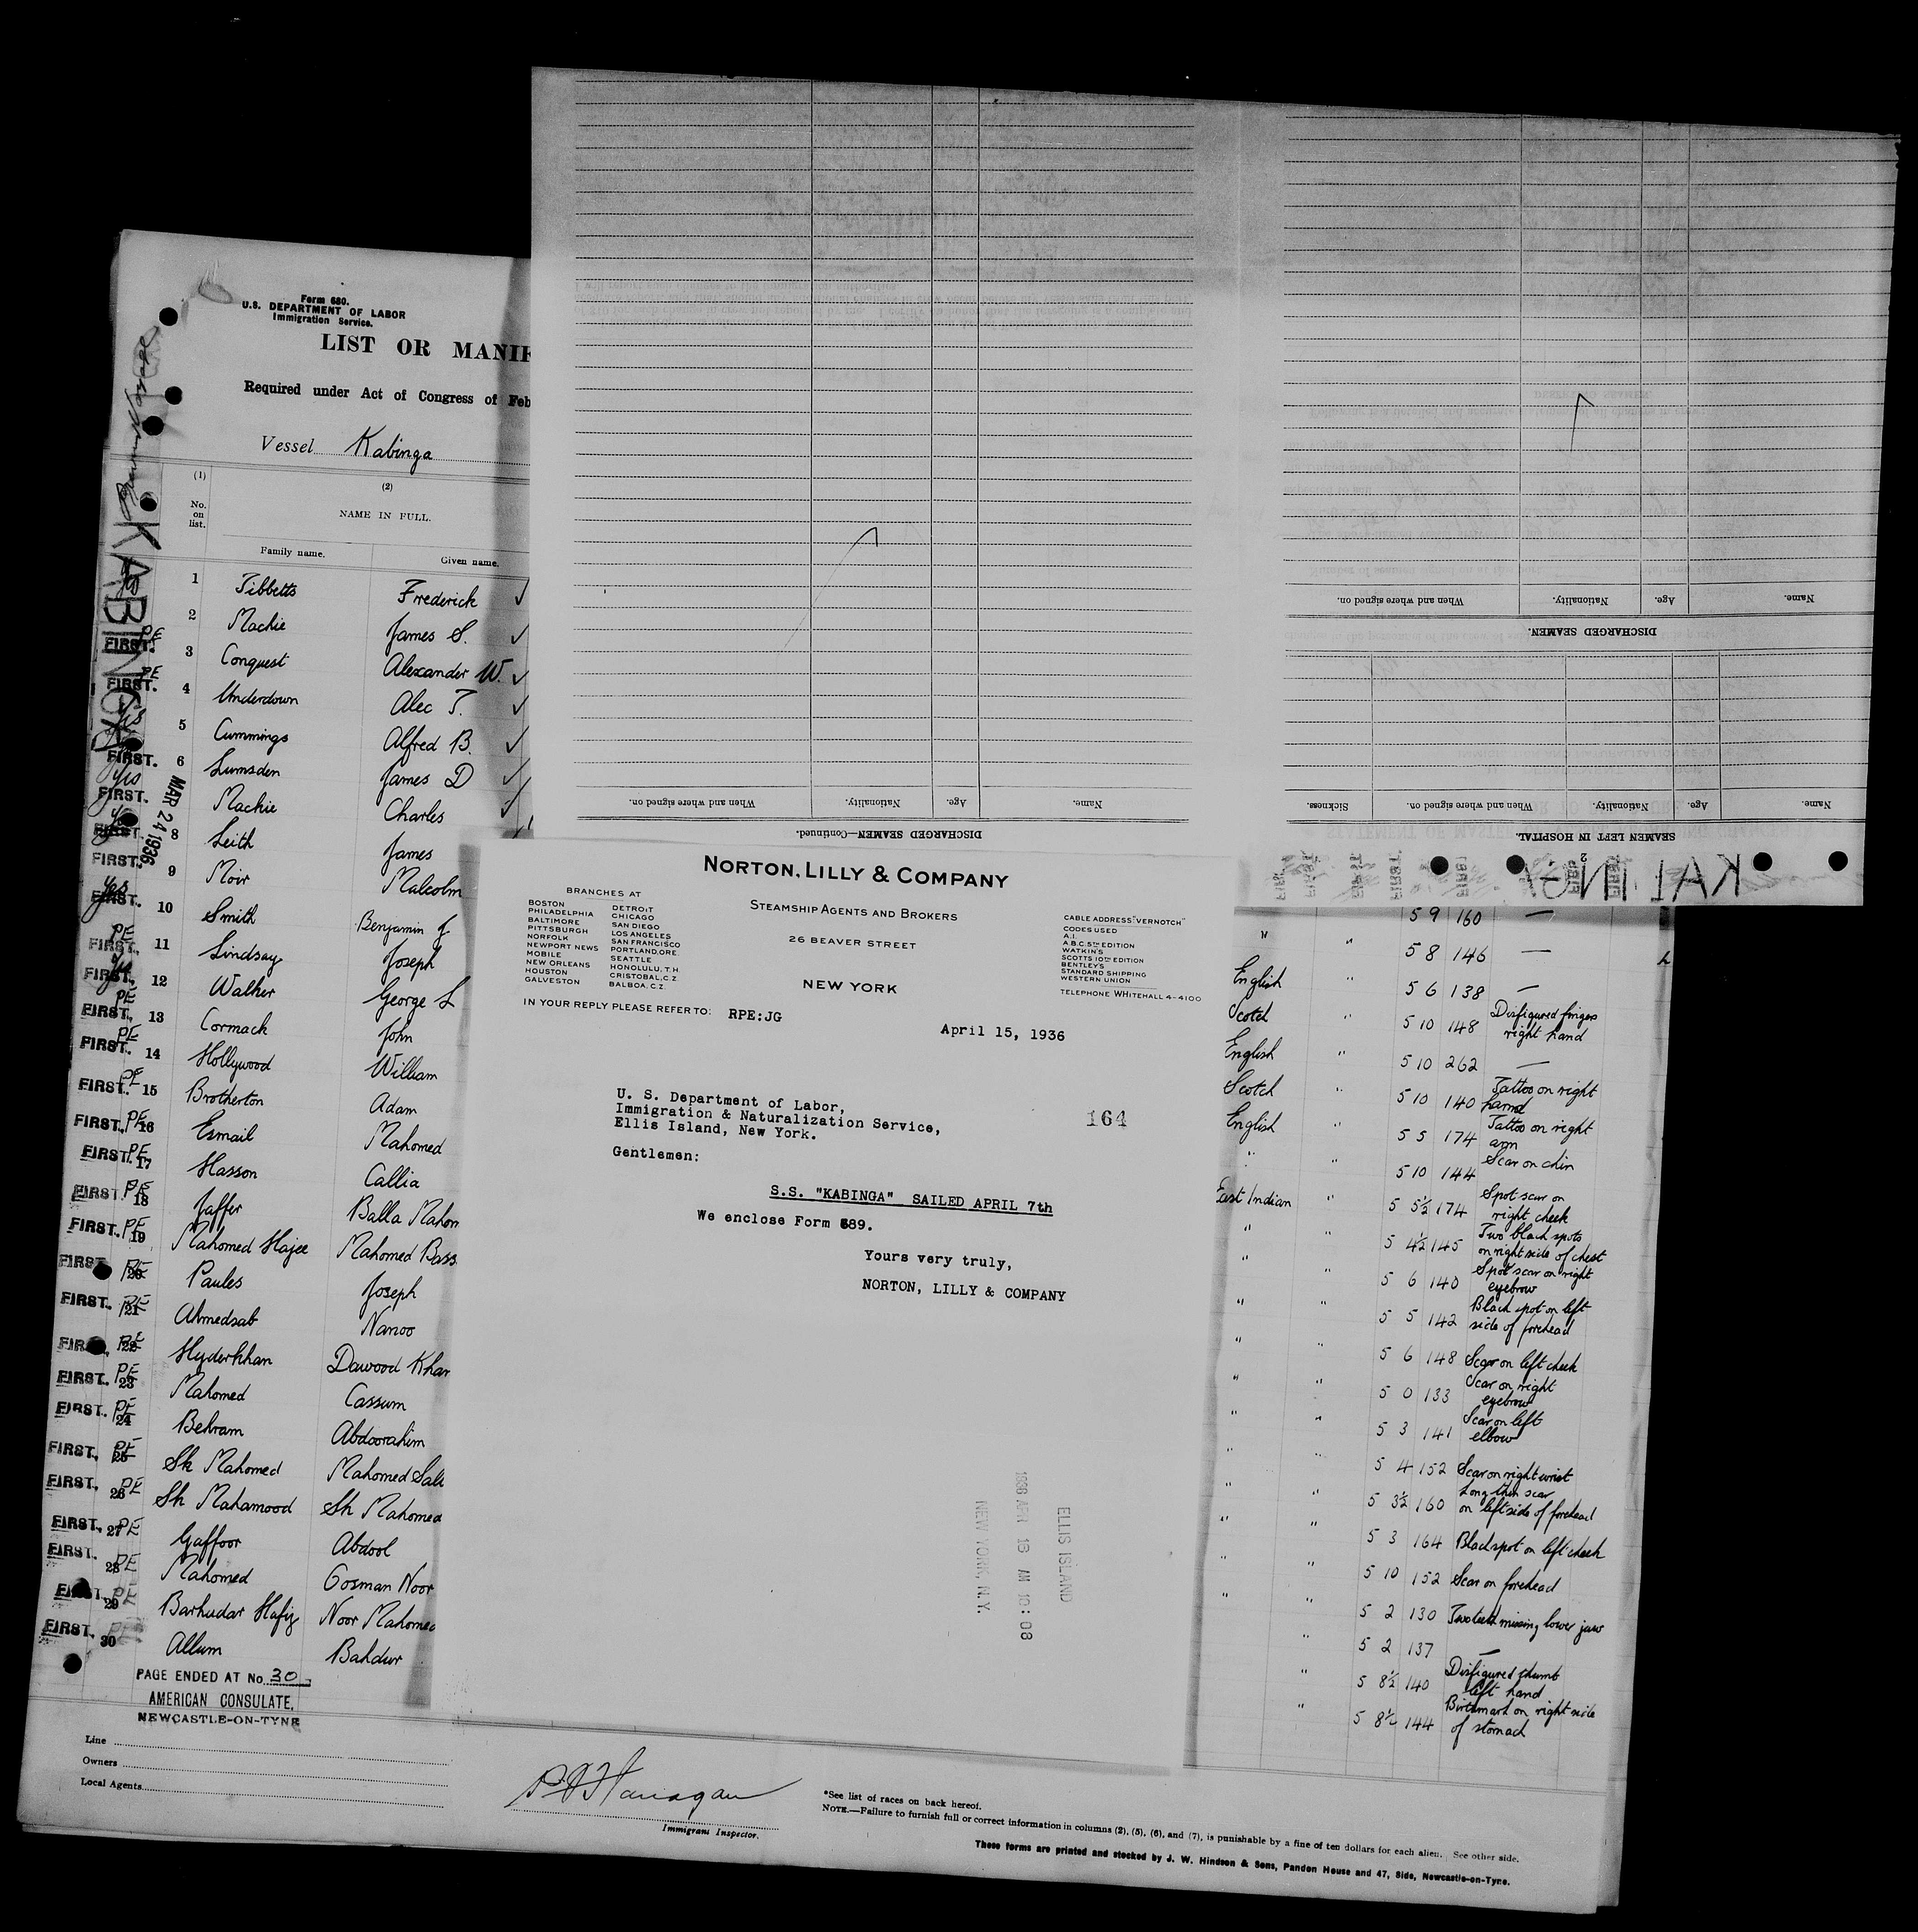 Form 680.
U.S. DEPARTMENT OF LABOR
Immigration Service.
LIST OR MANIF
Required under Act of Congress of Feb
Vessel Kabinga
(1) (2)
No. on list. NAME IN FULL.
Family name. Given name.
KABINGA
MAR 24 1936
1 Tibbetts Frederick
2 Mackie James S.
FIRST. PE 3 Conquest Alexander W.
FIRST. PE 4 Underdown Alec T.
yes 5 Cummings Alfred B.
FIRST. 6 Lumsden James D
yes FIRST. Mackie Charles
FIRST. 8 Leith James
FIRST. 9 Moir Malcolm
yes FIRST. 10 Smith Benjamin J
FIRST. PE 11 Lindsay Joseph
FIRST. 12 Walker George L
FIRST. PE 13 Cormack John
FIRST. PE 14 Hollywood William
FIRST. PE 15 Brotherton Adam
FIRST. PE 16 Esmail Mahomed
FIRST. PE 17 Hasson Callia
FIRST. PE 18 Jaffer Balla Mahom
FIRST. PE 19 Mahomed Hajee Mahomed Bass
FIRST. PE 20 Paules Joseph
FIRST. PE 21 Ahmedsab Nanoo
FIRST. PE 22 Hyderkhan Dawood Khan
FIRST. PE 23 Mahomed Cassum
FIRST. PE 24 Behram Abdoorahim
FIRST. PE 25 Sk Mahomed Mahomed Sale
FIRST. PE 26 Sk Mahamood Sk Mahomed
FIRST. PE 27 Gaffoor Abdool
FIRST. PE 28 Mahomed Oosman Noor
FIRST. PE 29 Barhudar Hafiz Noor Mahomed
FIRST. PE 30 Allum Bahdur
PAGE ENDED AT No. 30
AMERICAN CONSULATE,
NEWCASTLE-ON-TYNE
Line
Owners
Local Agents
Immigrant Inspector.
*See list of races on back hereof.
NOTE.—Failure to furnish full or correct information in columns (2), (5), (6), and (7), is punishable by a fine of ten dollars for each alien. See other side.
These forms are printed and stocked by J. W. Hindson & Sons, Pandon House and 47, Side, Newcastle-on-Tyne.
Name. Age. Nationality. When and where signed on.
DISCHARGED SEAMEN—Continued.
Name. Age. Nationality. When and where signed on.
DISCHARGED SEAMEN.
Name. Age. Nationality. When and where signed on. Sickness.
SEAMEN LEFT IN HOSPITAL
2
NORTON, LILLY & COMPANY
STEAMSHIP AGENTS AND BROKERS
26 BEAVER STREET
NEW YORK
BRANCHES AT
BOSTON DETROIT
PHILADELPHIA CHICAGO
BALTIMORE SAN DIEGO
PITTSBURGH LOS ANGELES
NORFOLK SAN FRANCISCO
NEWPORT NEWS PORTLAND, ORE.
MOBILE SEATTLE
NEW ORLEANS HONOLULU, T.H.
HOUSTON CRISTOBAL, C.Z.
GALVESTON BALBOA, C.Z.
CABLE ADDRESS "VERNOTCH"
CODES USED
A.I.
A.B.C. 5TH EDITION
WATKIN'S
SCOTTS 10TH EDITION
BENTLEY'S
STANDARD SHIPPING
WESTERN UNION
TELEPHONE WHITEHALL 4-4100
IN YOUR REPLY PLEASE REFER TO: RPE:JG
April 15, 1936
U. S. Department of Labor,
Immigration & Naturalization Service,
Ellis Island, New York.
164
Gentlemen:
S.S. "KABINGA" SAILED APRIL 7th
We enclose Form 689.
Yours very truly,
NORTON, LILLY & COMPANY
ELLIS ISLAND
1936 APR 15 AM 10:08
NEW YORK, N.Y.
5 9 160 —
" " 5 8 146 —
English " 5 6 138 —
Scotch " 5 10 148 Disfigured fingers right hand
English " 5 10 262 —
Scotch " 5 10 140 Tattoo on right hand
English " 5 5 174 Tattoo on right arm
" " 5 10 144 Scar on chin
East Indian " 5 5½ 174 Spot scar on right cheek
" " 5 4½ 145 Two black spots on right side of chest
" " 5 6 140 Spot scar on right eyebrow
" " 5 5 142 Black spot on left side of forehead
" " 5 6 148 Scar on left cheek
" " 5 0 133 Scar on right eyebrow
" " 5 3 141 Scar on left elbow
" " 5 4 152 Scar on right wrist
" " 5 3½ 160 Long thin scar on left side of forehead
" " 5 3 164 Black spot on left cheek
" " 5 10 152 Scar on forehead
" " 5 2 130 Two teeth missing lower jaw
" 5 2 137 —
" 5 8½ 140 Disfigured thumb left hand
" 5 8½ 144 Birthmark on right side of stomach